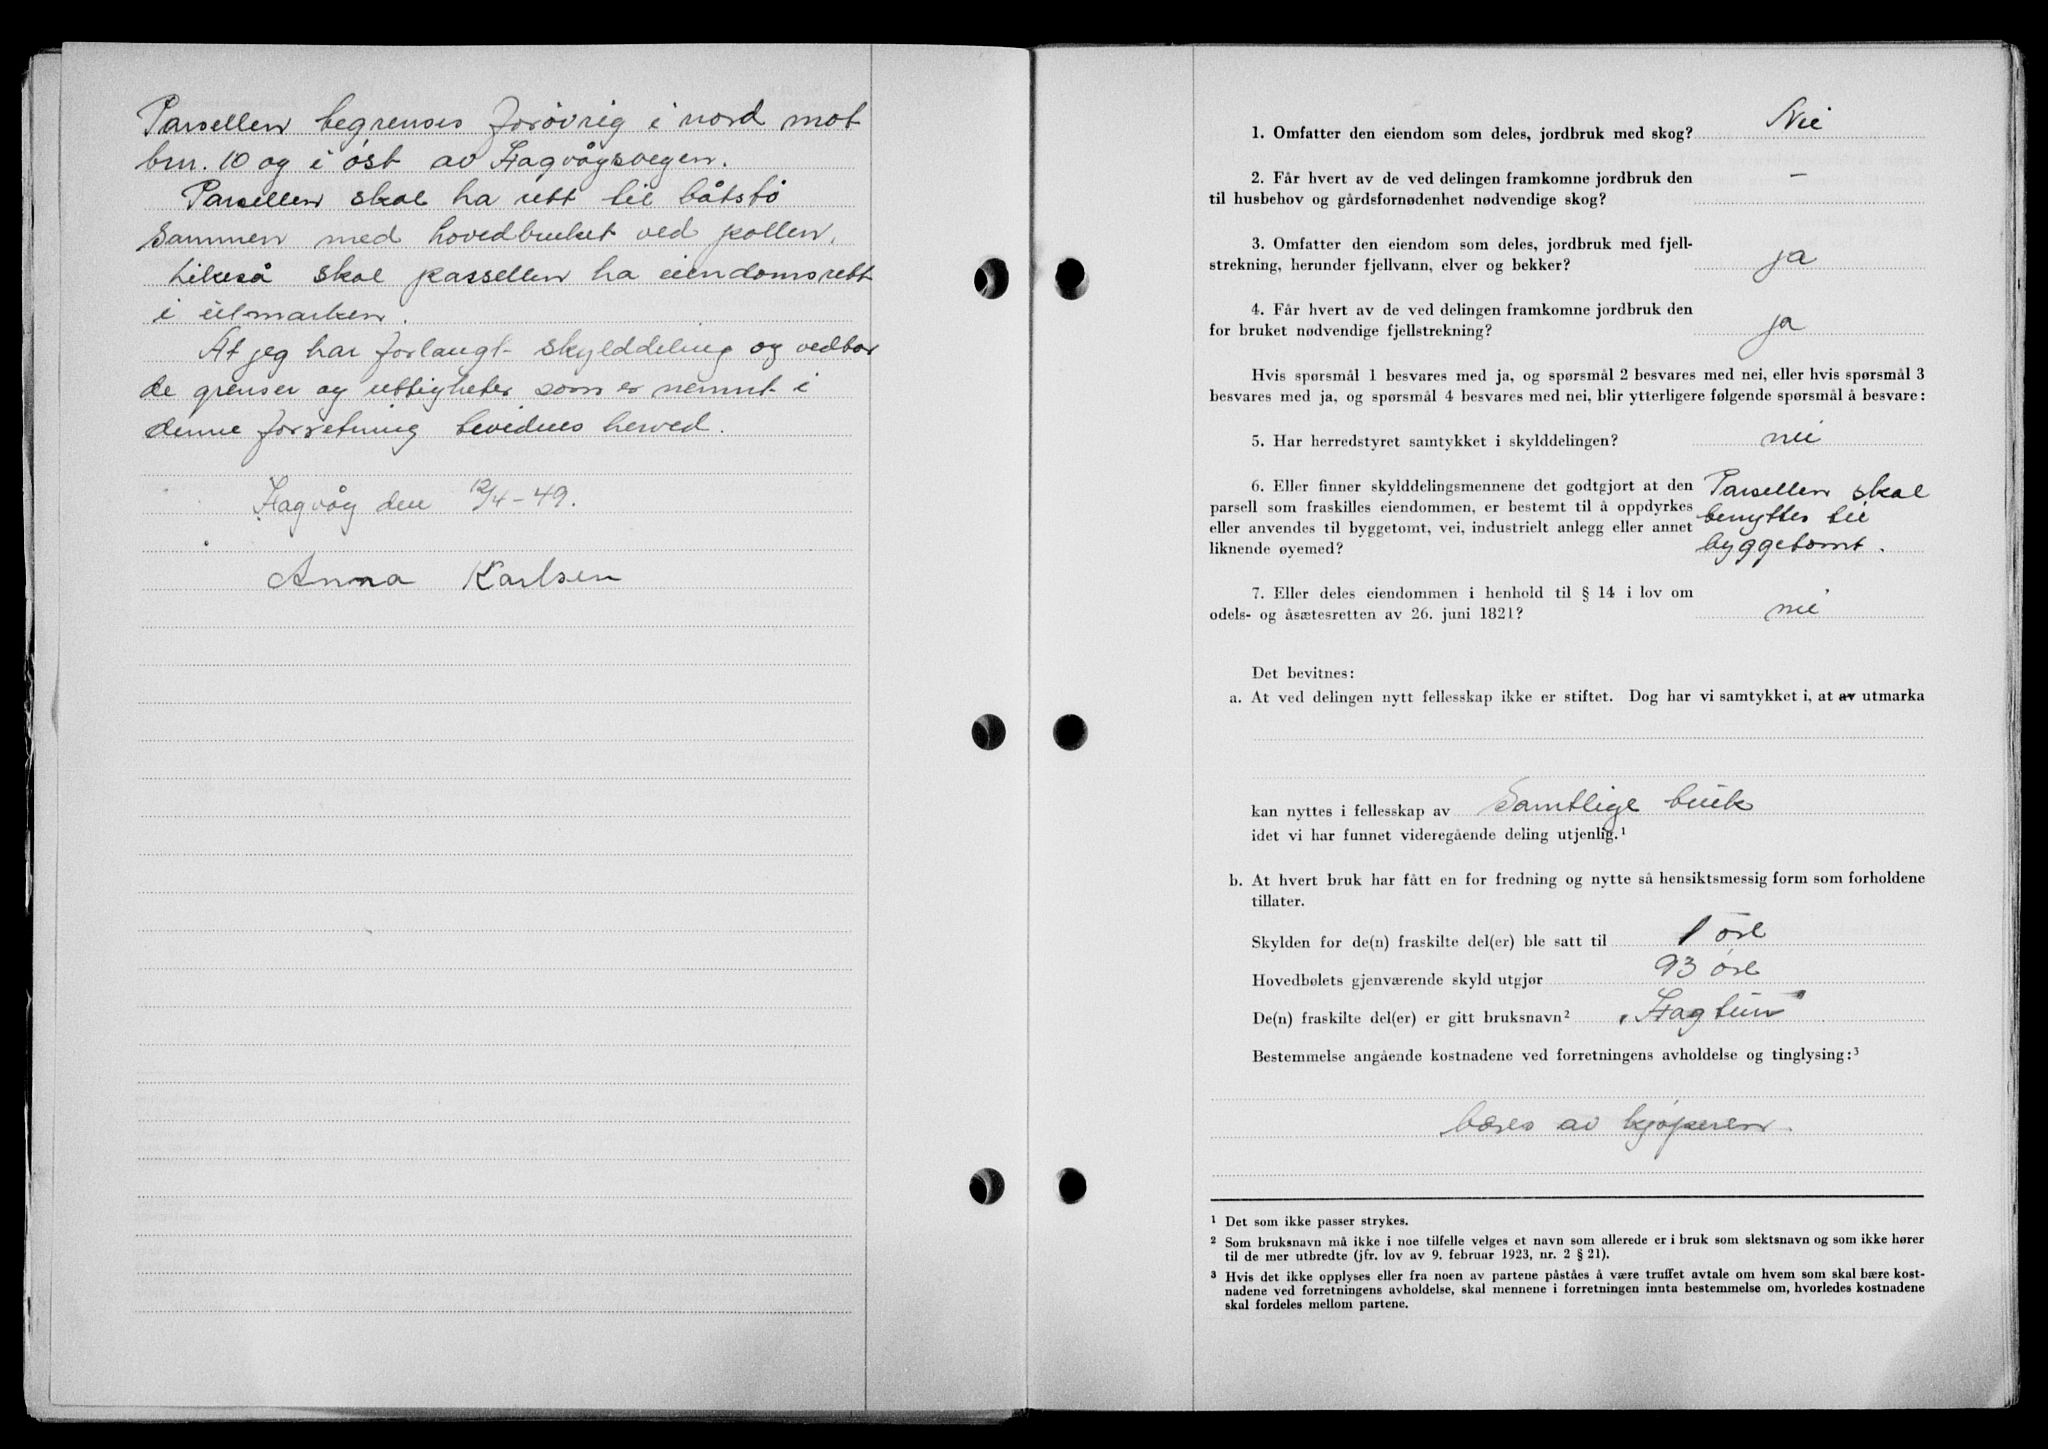 Parsellen begrenses forøvrig i nord mot
bnr. 10 og i øst av Hagvågsvegen.
Parsellen skal ha rett til båtstø
sammen med hovedbruket ved pollen.
Likeså skal passellen ha eiendomsrett
i utmarken.
At jeg har forlangt skylddeling og vedtar
de grenser og rettigheter som er nemnt i
denne forretning bevidnes herved.
Hagvåg den 12/4-49.
Anna Karlsen
1. Omfatter den eiendom som deles, jordbruk med skog? Nei
2. Får hvert av de ved delingen framkomne jordbruk den –
til husbehov og gårdsfornødenhet nødvendige skog?
3. Omfatter den eiendom som deles, jordbruk med fjell-
strekning, herunder fjellvann, elver og bekker? ja
4. Får hvert av de ved delingen framkomne jordbruk den
for bruket nødvendige fjellstrekning? ja
Hvis spørsmål 1 besvares med ja, og spørsmål 2 besvares med nei, eller hvis spørsmål 3
besvares med ja, og spørsmål 4 besvares med nei, blir ytterligere følgende spørsmål å besvare:
5. Har herredstyret samtykket i skylddelingen? nei
6. Eller finner skylddelingsmennene det godtgjort at den Parsellen skal
parsell som fraskilles eiendommen, er bestemt til å oppdyrkes benyttes til
eller anvendes til byggetomt, vei, industrielt anlegg eller annet byggetomt.
liknende øyemed?
7. Eller deles eiendommen i henhold til § 14 i lov om
odels- og åsætesretten av 26. juni 1821? nei
Det bevitnes:
a. At ved delingen nytt fellesskap ikke er stiftet. Dog har vi samtykket i, at av utmarka
kan nyttes i fellesskap av Samtlige bruk
idet vi har funnet videregående deling utjenlig.¹
b. At hvert bruk har fått en for fredning og nytte så hensiktsmessig form som forholdene
tillater.
Skylden for de(n) fraskilte del(er) ble satt til 1 øre
Hovedbølets gjenværende skyld utgjør 93 øre
De(n) fraskilte del(er) er gitt bruksnavn² „Hagtun"
Bestemmelse angående kostnadene ved forretningens avholdelse og tinglysing:³
bæres av kjøperen.
¹ Det som ikke passer strykes.
² Som bruksnavn må ikke i noe tilfelle velges et navn som allerede er i bruk som slektsnavn og som ikke hører
til de mer utbredte (jfr. lov av 9. februar 1923, nr. 2 § 21).
³ Hvis det ikke opplyses eller fra noen av partene påståes å være truffet avtale om hvem som skal bære kost-
nadene ved forretningens avholdelse, skal mennene i forretningen innta bestemmelse om, hvorledes kostnadene
skal fordeles mellom partene.